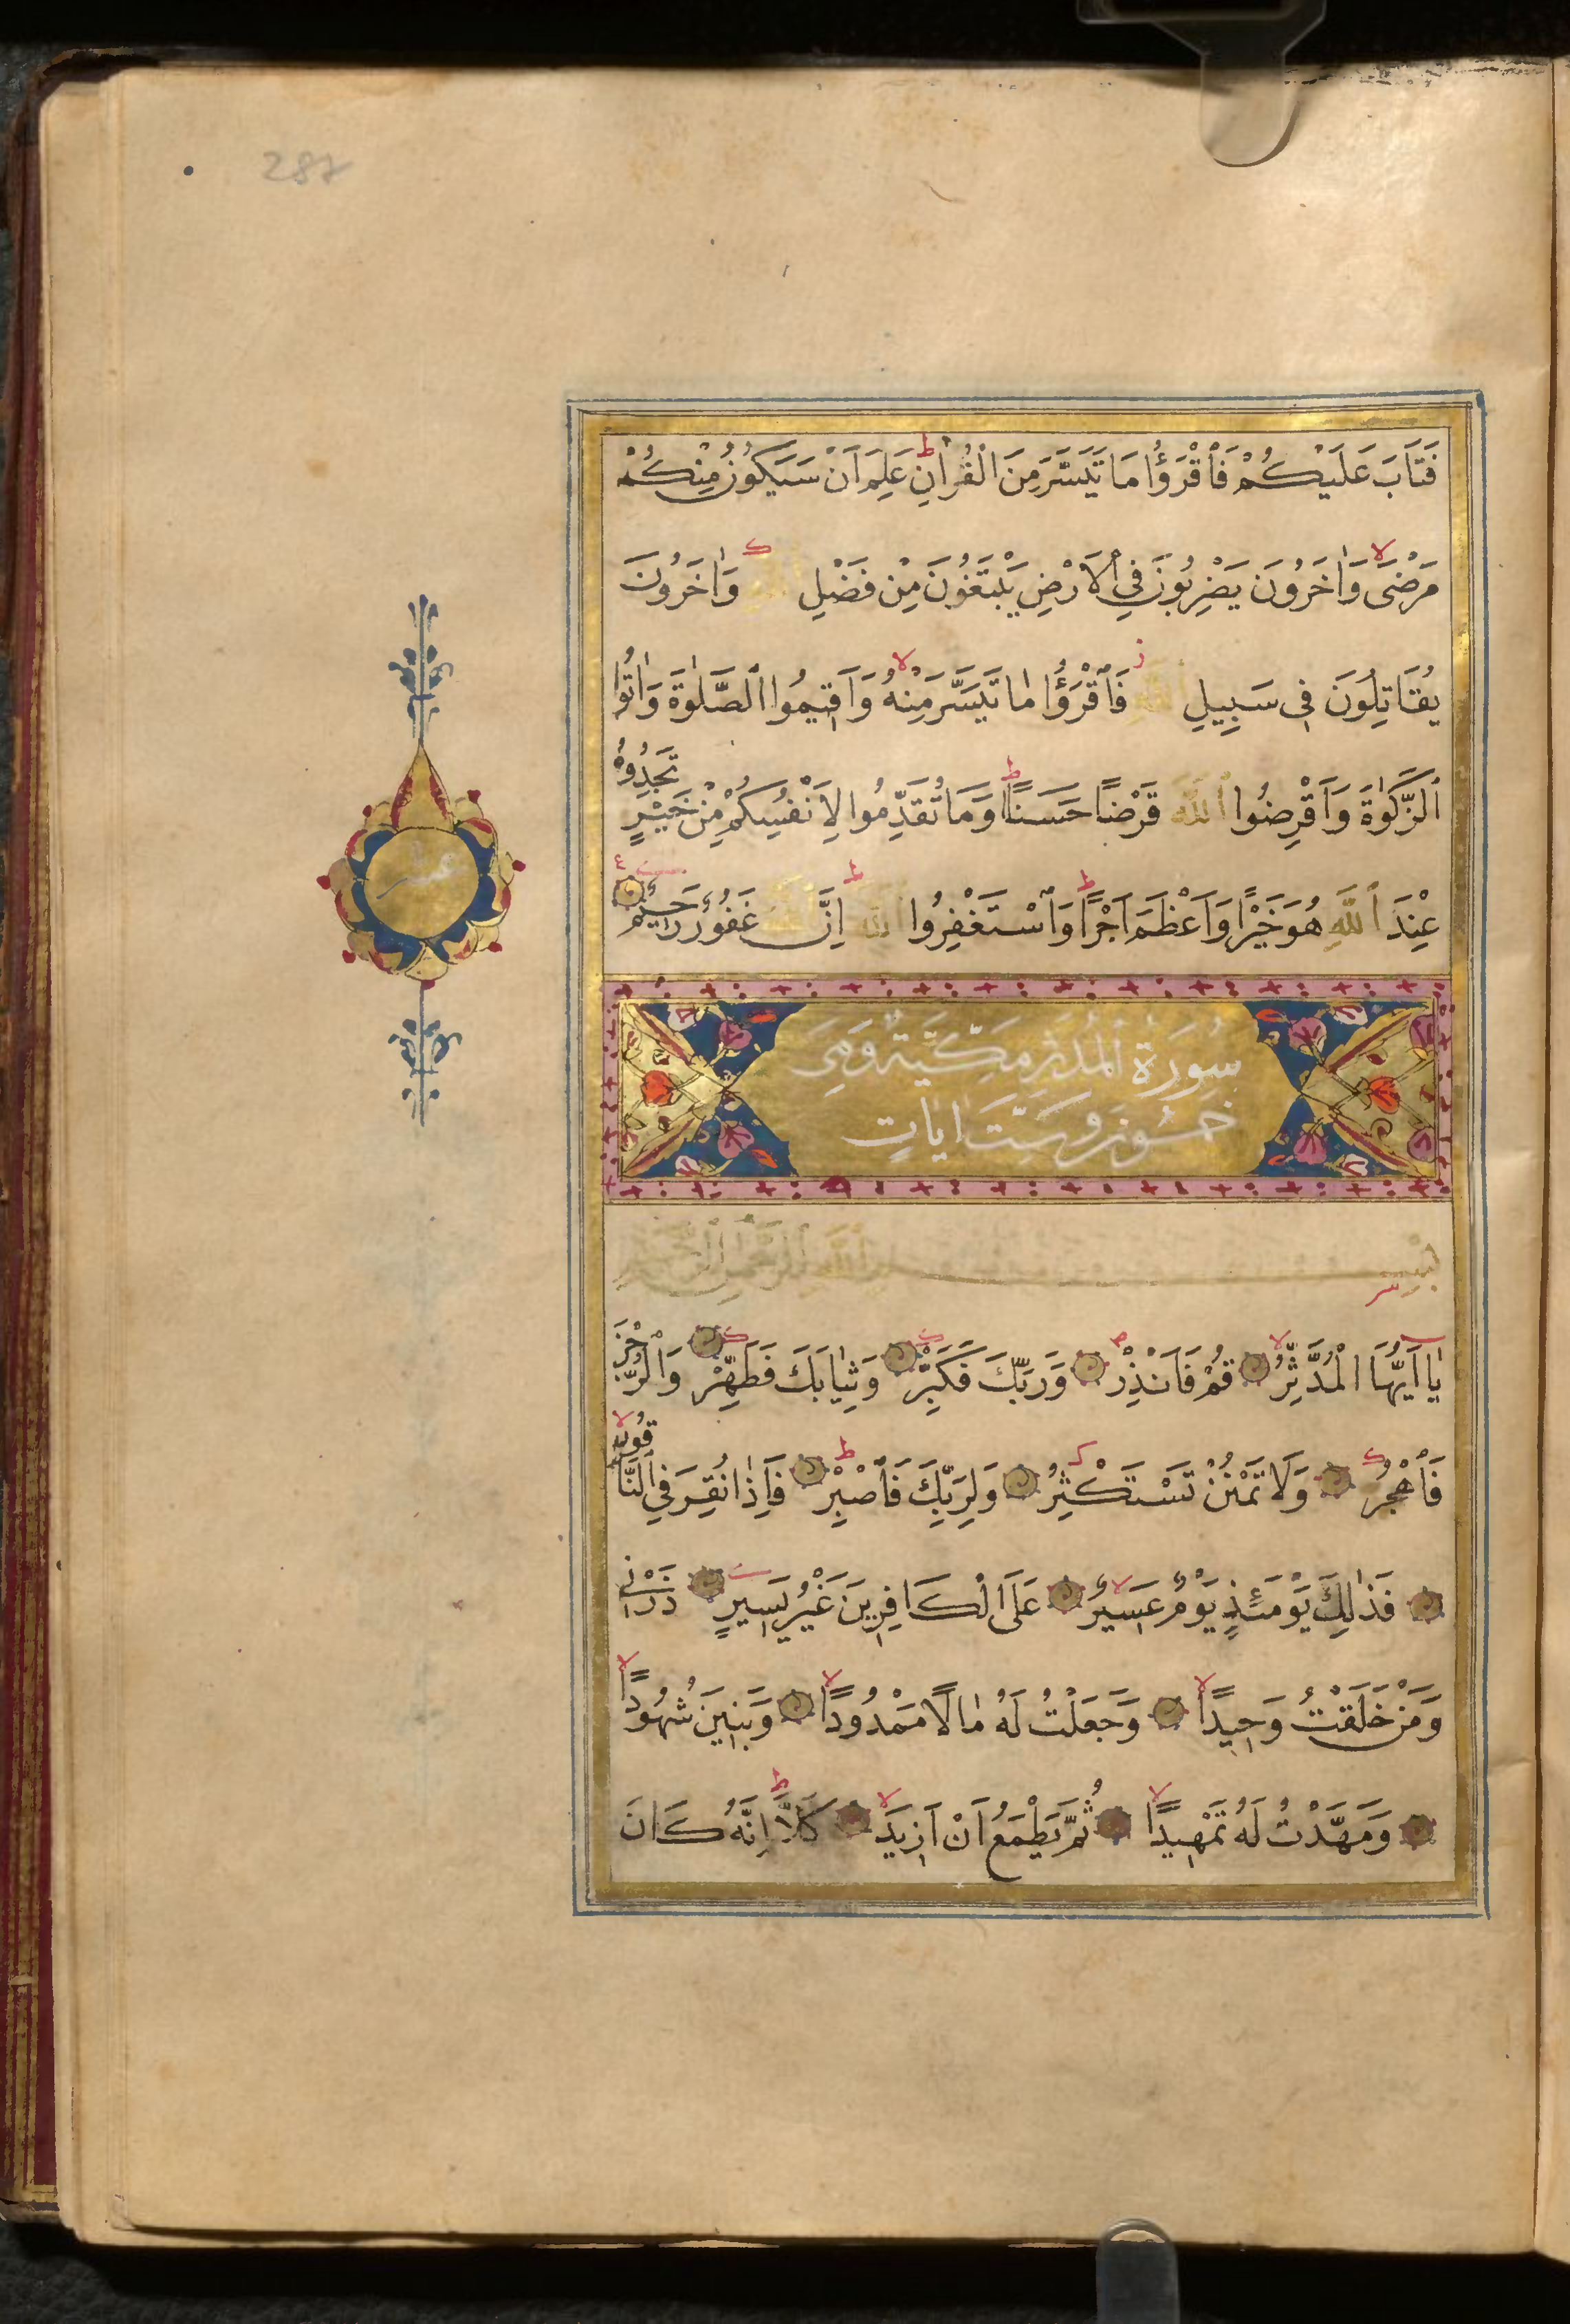 287
فَتَابَ عَلَيْكُمْ فَاقْرَؤُا مَا تَيَسَّرَ مِنَ الْقُرْاٰنِ عَلِمَ اَنْ سَيَكُونُ مِنْكُمْ
مَرْضٰى وَاٰخَرُونَ يَضْرِبُونَ فِي الْاَرْضِ يَبْتَغُونَ مِنْ فَضْلِ اللّٰهِ وَاٰخَرُونَ
يُقَاتِلُونَ فِي سَبِيلِ اللّٰهِ فَاقْرَؤُا مَا تَيَسَّرَ مِنْهُ وَاَقِيمُوا الصَّلٰوةَ وَاٰتُوا
الزَّكٰوةَ وَاَقْرِضُوا اللّٰهَ قَرْضًا حَسَنًا وَمَا تُقَدِّمُوا لِاَنْفُسِكُمْ مِنْ خَيْرٍ تَجِدُوهُ
عِنْدَ اللّٰهِ هُوَ خَيْرًا وَاَعْظَمَ اَجْرًا وَاسْتَغْفِرُوا اللّٰهَ اِنَّ اللّٰهَ غَفُورٌ رَحِيمٌ
عشر
سُورَةُ الْمُدَّثِّرِ مَكِّيَّةٌ وَهِيَ
خَمْسُونَ وَسِتُّ اٰيَاتٍ
بِسْمِ اللّٰهِ الرَّحْمٰنِ الرَّحِيمِ
يَا اَيُّهَا الْمُدَّثِّرُ قُمْ فَاَنْذِرْ وَرَبَّكَ فَكَبِّرْ وَثِيَابَكَ فَطَهِّرْ وَالرُّجْزَ
فَاهْجُرْ وَلَا تَمْنُنْ تَسْتَكْثِرُ وَلِرَبِّكَ فَاصْبِرْ فَاِذَا نُقِرَ فِي النَّاقُورِ
فَذٰلِكَ يَوْمَئِذٍ يَوْمٌ عَسِيرٌ عَلَى الْكَافِرِينَ غَيْرُ يَسِيرٍ ذَرْنِي
وَمَنْ خَلَقْتُ وَحِيدًا وَجَعَلْتُ لَهُ مَالًا مَمْدُودًا وَبَنِينَ شُهُودًا
وَمَهَّدْتُ لَهُ تَمْهِيدًا ثُمَّ يَطْمَعُ اَنْ اَزِيدَ كَلَّا اِنَّهُ كَانَ